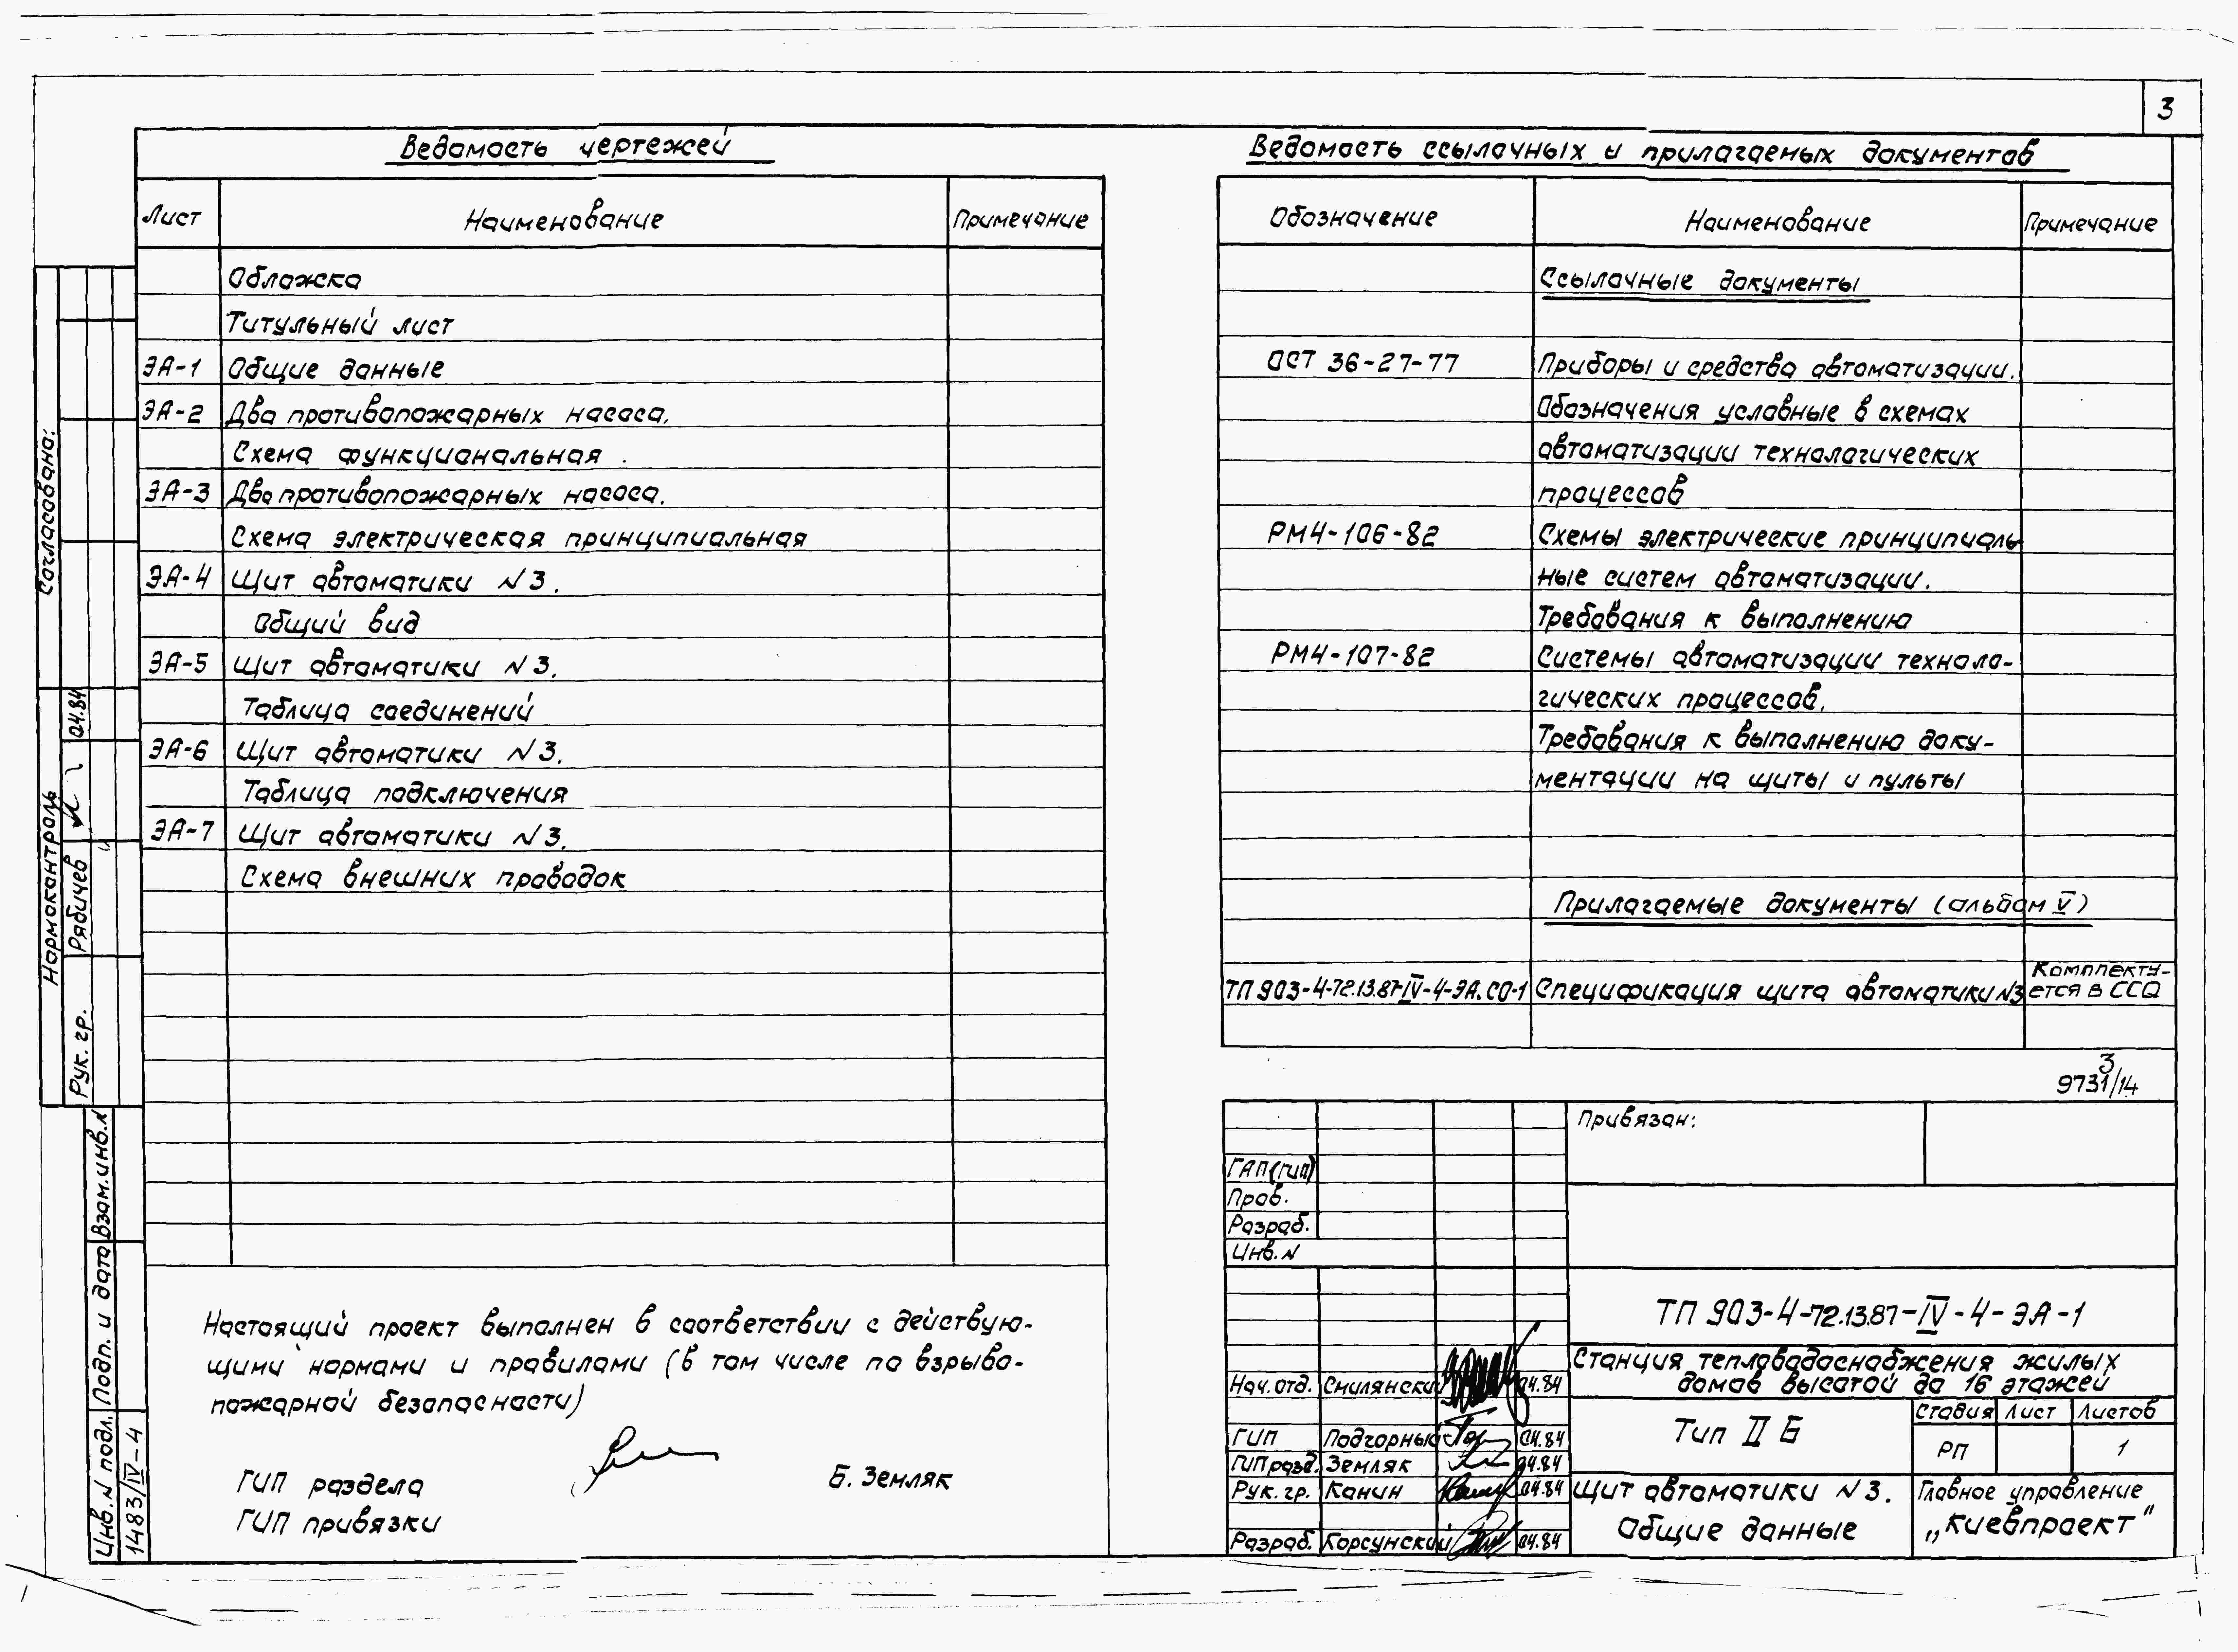 3
Ведомость чертежей
Лист Наименование Примечание
Обложка
Титульный лист
ЭА-1 Общие данные
ЭА-2 Два противопожарных насоса.
Схема функциональная.
ЭА-3 Два противопожарных насоса.
Схема электрическая принципиальная
ЭА-4 Щит автоматики N3.
Общий вид
ЭА-5 Щит автоматики N3.
Таблица соединений
ЭА-6 Щит автоматики N3.
Таблица подключения
ЭА-7 Щит автоматики N3.
Схема внешних проводок
Настоящий проект выполнен в соответствии с действую-
щими нормами и правилами (в том числе по взрыво-
пожарной безопасности)
ГИП раздела Б. Земляк
ГИП привязки
Ведомость ссылочных и прилагаемых документов
Обозначение Наименование Примечание
Ссылочные документы
ОСТ 36-27-77 Приборы и средства автоматизации.
Обозначения условные в схемах
автоматизации технологических
процессов
РМ4-106-82 Схемы электрические принципиаль-
ные систем автоматизации.
Требования к выполнению
РМ4-107-82 Системы автоматизации техноло-
гических процессов.
Требования к выполнению доку-
ментации на щиты и пульты
Прилагаемые документы (альбом V)
ТП 903-4-72.13.87-IV-4-ЭА.СО-1 Спецификация щита автоматики N3 Комплекту-
ется в ССО
3
9731/14
Привязан:
ГАП (ГИП)
Пров.
Разраб.
Инв. N
ТП 903-4-72.13.87-IV-4-ЭА-1
Станция тепловодоснабжения жилых
домов высотой до 16 этажей
Нач. отд. Смилянский 04.84
ГИП Подгорный 04.84
ГИП разд. Земляк 04.84
Рук. гр. Канин 04.84
Разраб. Корсунский 04.84
Тип II Б
Стадия Лист Листов
РП 1
Щит автоматики N3.
Общие данные
Главное управление
„Киевпроект"
Согласовано:
Нормоконтроль
Рук. гр. Рябичев 04.84
Взам. инв. N
Подп. и дата
Инв. N подл.
1483/IV-4